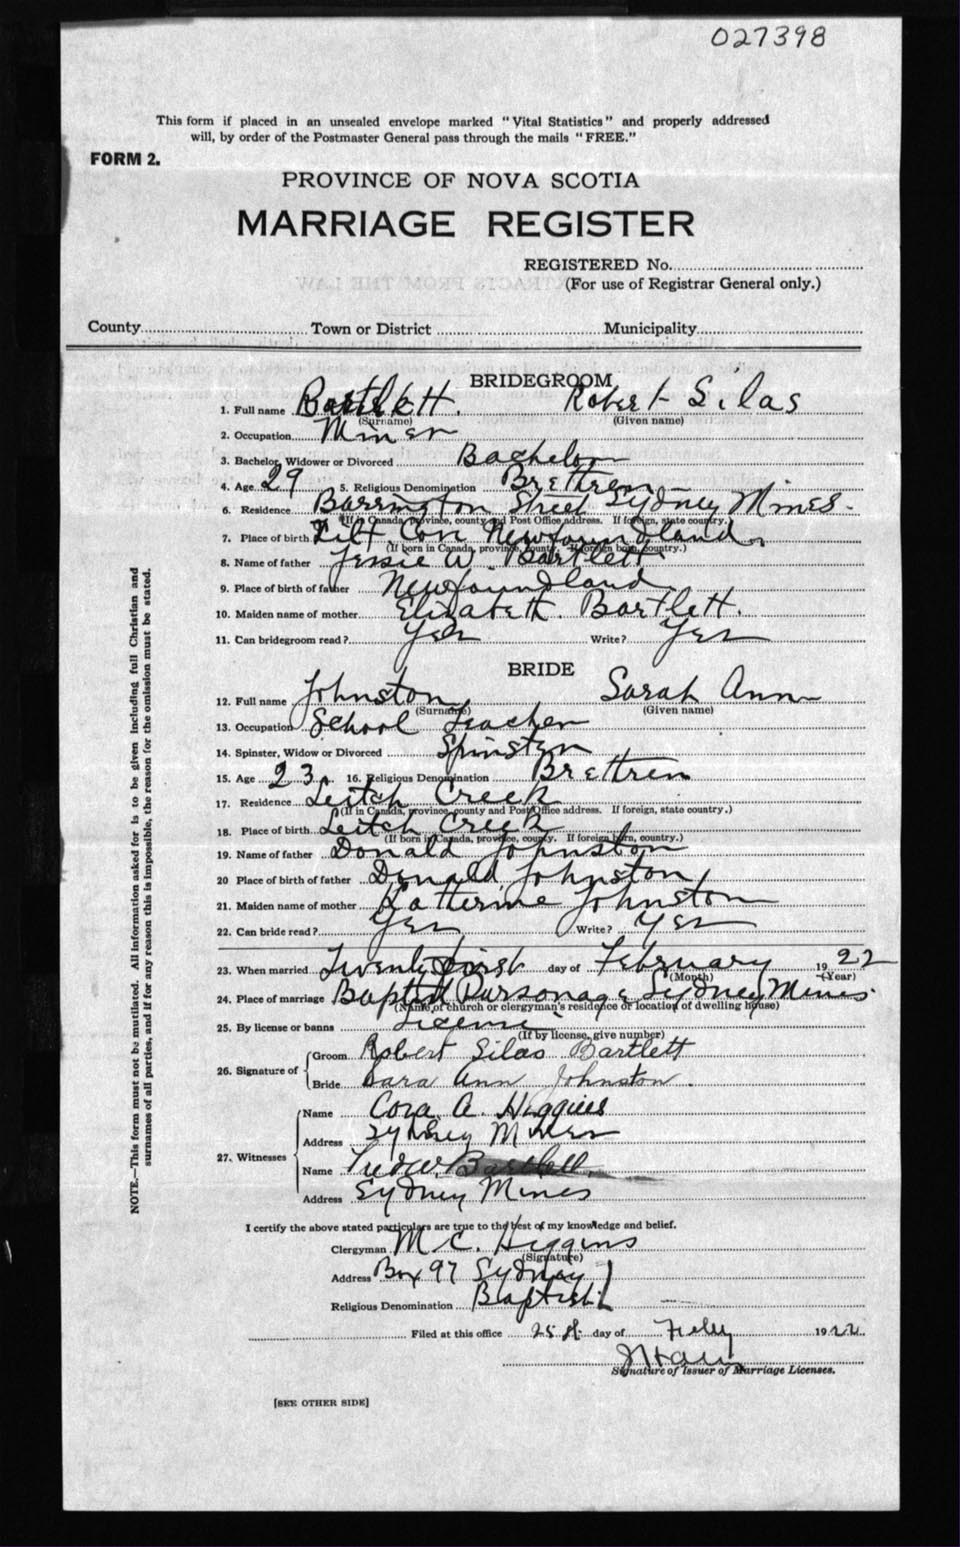 027398
This form if placed in an unsealed envelope marked "Vital Statistics" and properly addressed
will, by order of the Postmaster General pass through the mails "FREE."
FORM 2.
PROVINCE OF NOVA SCOTIA
MARRIAGE REGISTER
REGISTERED No.
(For use of Registrar General only.)
County Town or District Municipality
BRIDEGROOM
1. Full name Bartlett. Robert Silas
(Surname) (Given name)
2. Occupation Miner
3. Bachelor, Widower or Divorced Bachelor
4. Age 29 5. Religious Denomination Brethren
6. Residence Barrington Street Sydney Mines.
(If in Canada, province, county and Post Office address. If foreign, state country.)
7. Place of birth Tilt Cove Newfoundland.
(If born in Canada, province, county. If foreign born, country.)
8. Name of father Jessie W. Bartlett
9. Place of birth of father Newfoundland
10. Maiden name of mother Elizabeth Bartlett.
11. Can bridegroom read? Yes Write? Yes
BRIDE
12. Full name Johnston Sarah Ann
(Surname) (Given name)
13. Occupation School Teacher
14. Spinster, Widow or Divorced Spinster
15. Age 23 16. Religious Denomination Brethren
17. Residence Leitch Creek
(If in Canada, province, county and Post Office address. If foreign, state country.)
18. Place of birth Leitch Creek
(If born in Canada, province, county. If foreign born, country.)
19. Name of father Donald Johnston
20 Place of birth of father Donald Johnston
21. Maiden name of mother Katherine Johnston
22. Can bride read? Yes Write? Yes
23. When married Twenty first day of February 1922
(Month) (Year)
24. Place of marriage Baptist Parsonage Sydney Mines.
(Name of church or clergyman's residence or location of dwelling house)
25. By license or banns License
(If by license, give number)
26. Signature of Groom Robert Silas Bartlett
Bride Sara Ann Johnston.
27. Witnesses
Name Cora A. Higgins
Address Sydney Mines
Name Bartlett
Address Sydney Mines
I certify the above stated particulars are true to the best of my knowledge and belief.
Clergyman M C. Higgins
(Signature)
Address Box 97 Sydney
Religious Denomination Baptist
Filed at this office 25 day of Feby 1922
Signature of Issuer of Marriage Licenses.
[SEE OTHER SIDE]
NOTE.—This form must not be mutilated. All information asked for is to be given including full Christian and
surnames of all parties, and if for any reason this is impossible, the reason for the omission must be stated.